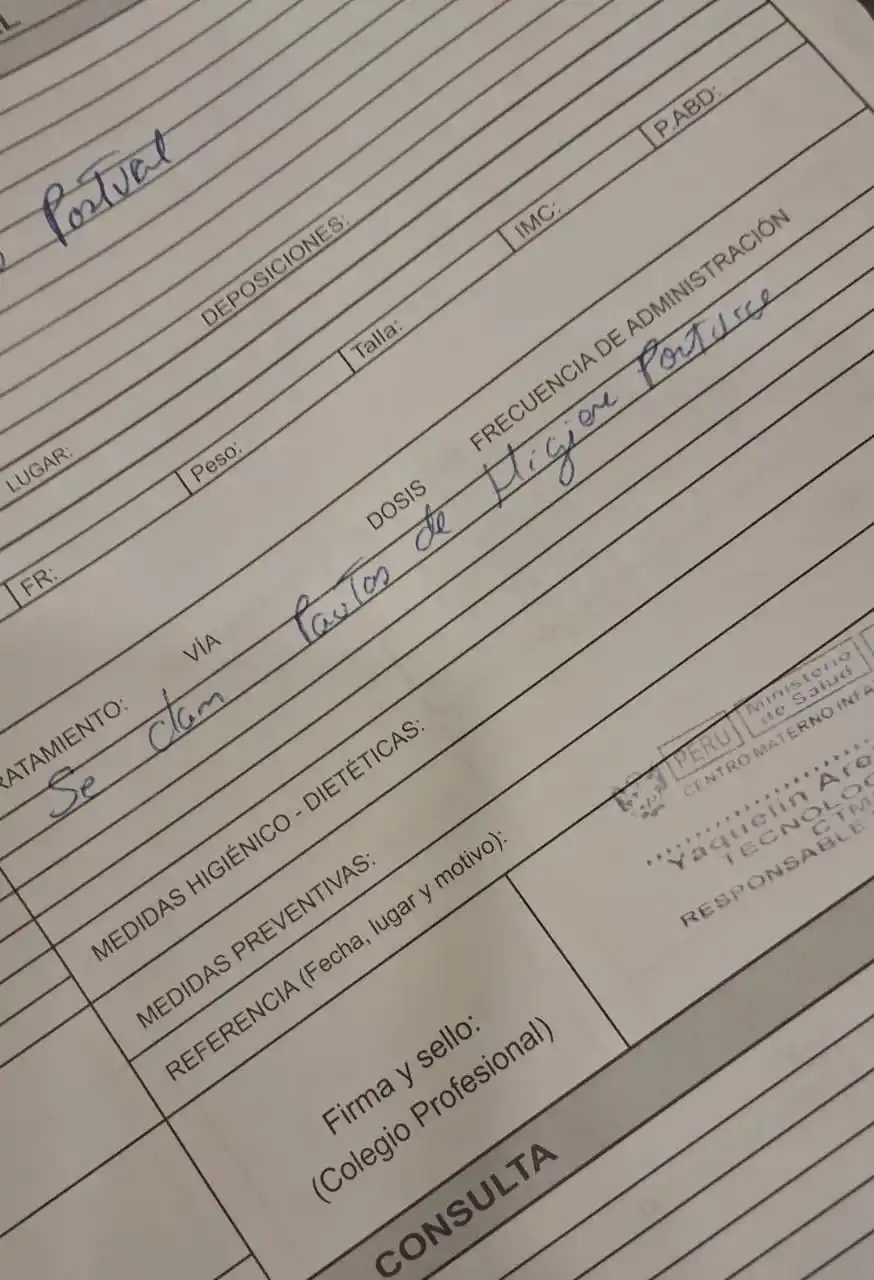 Postural
DEPOSICIONES:
P.ABD:
LUGAR:
FR:
Peso:
Talla:
IMC:
RATAMIENTO: VÍA DOSIS FRECUENCIA DE ADMINISTRACIÓN
Se dan Pautas de Higiene Postural
MEDIDAS HIGIÉNICO - DIETÉTICAS:
MEDIDAS PREVENTIVAS:
REFERENCIA (Fecha, lugar y motivo):
Firma y sello:
(Colegio Profesional)
PERU Ministerio de Salud
CENTRO MATERNO INFA
Yaquelin Aro
TECNOLOG
CTM
RESPONSABLE
CONSULTA